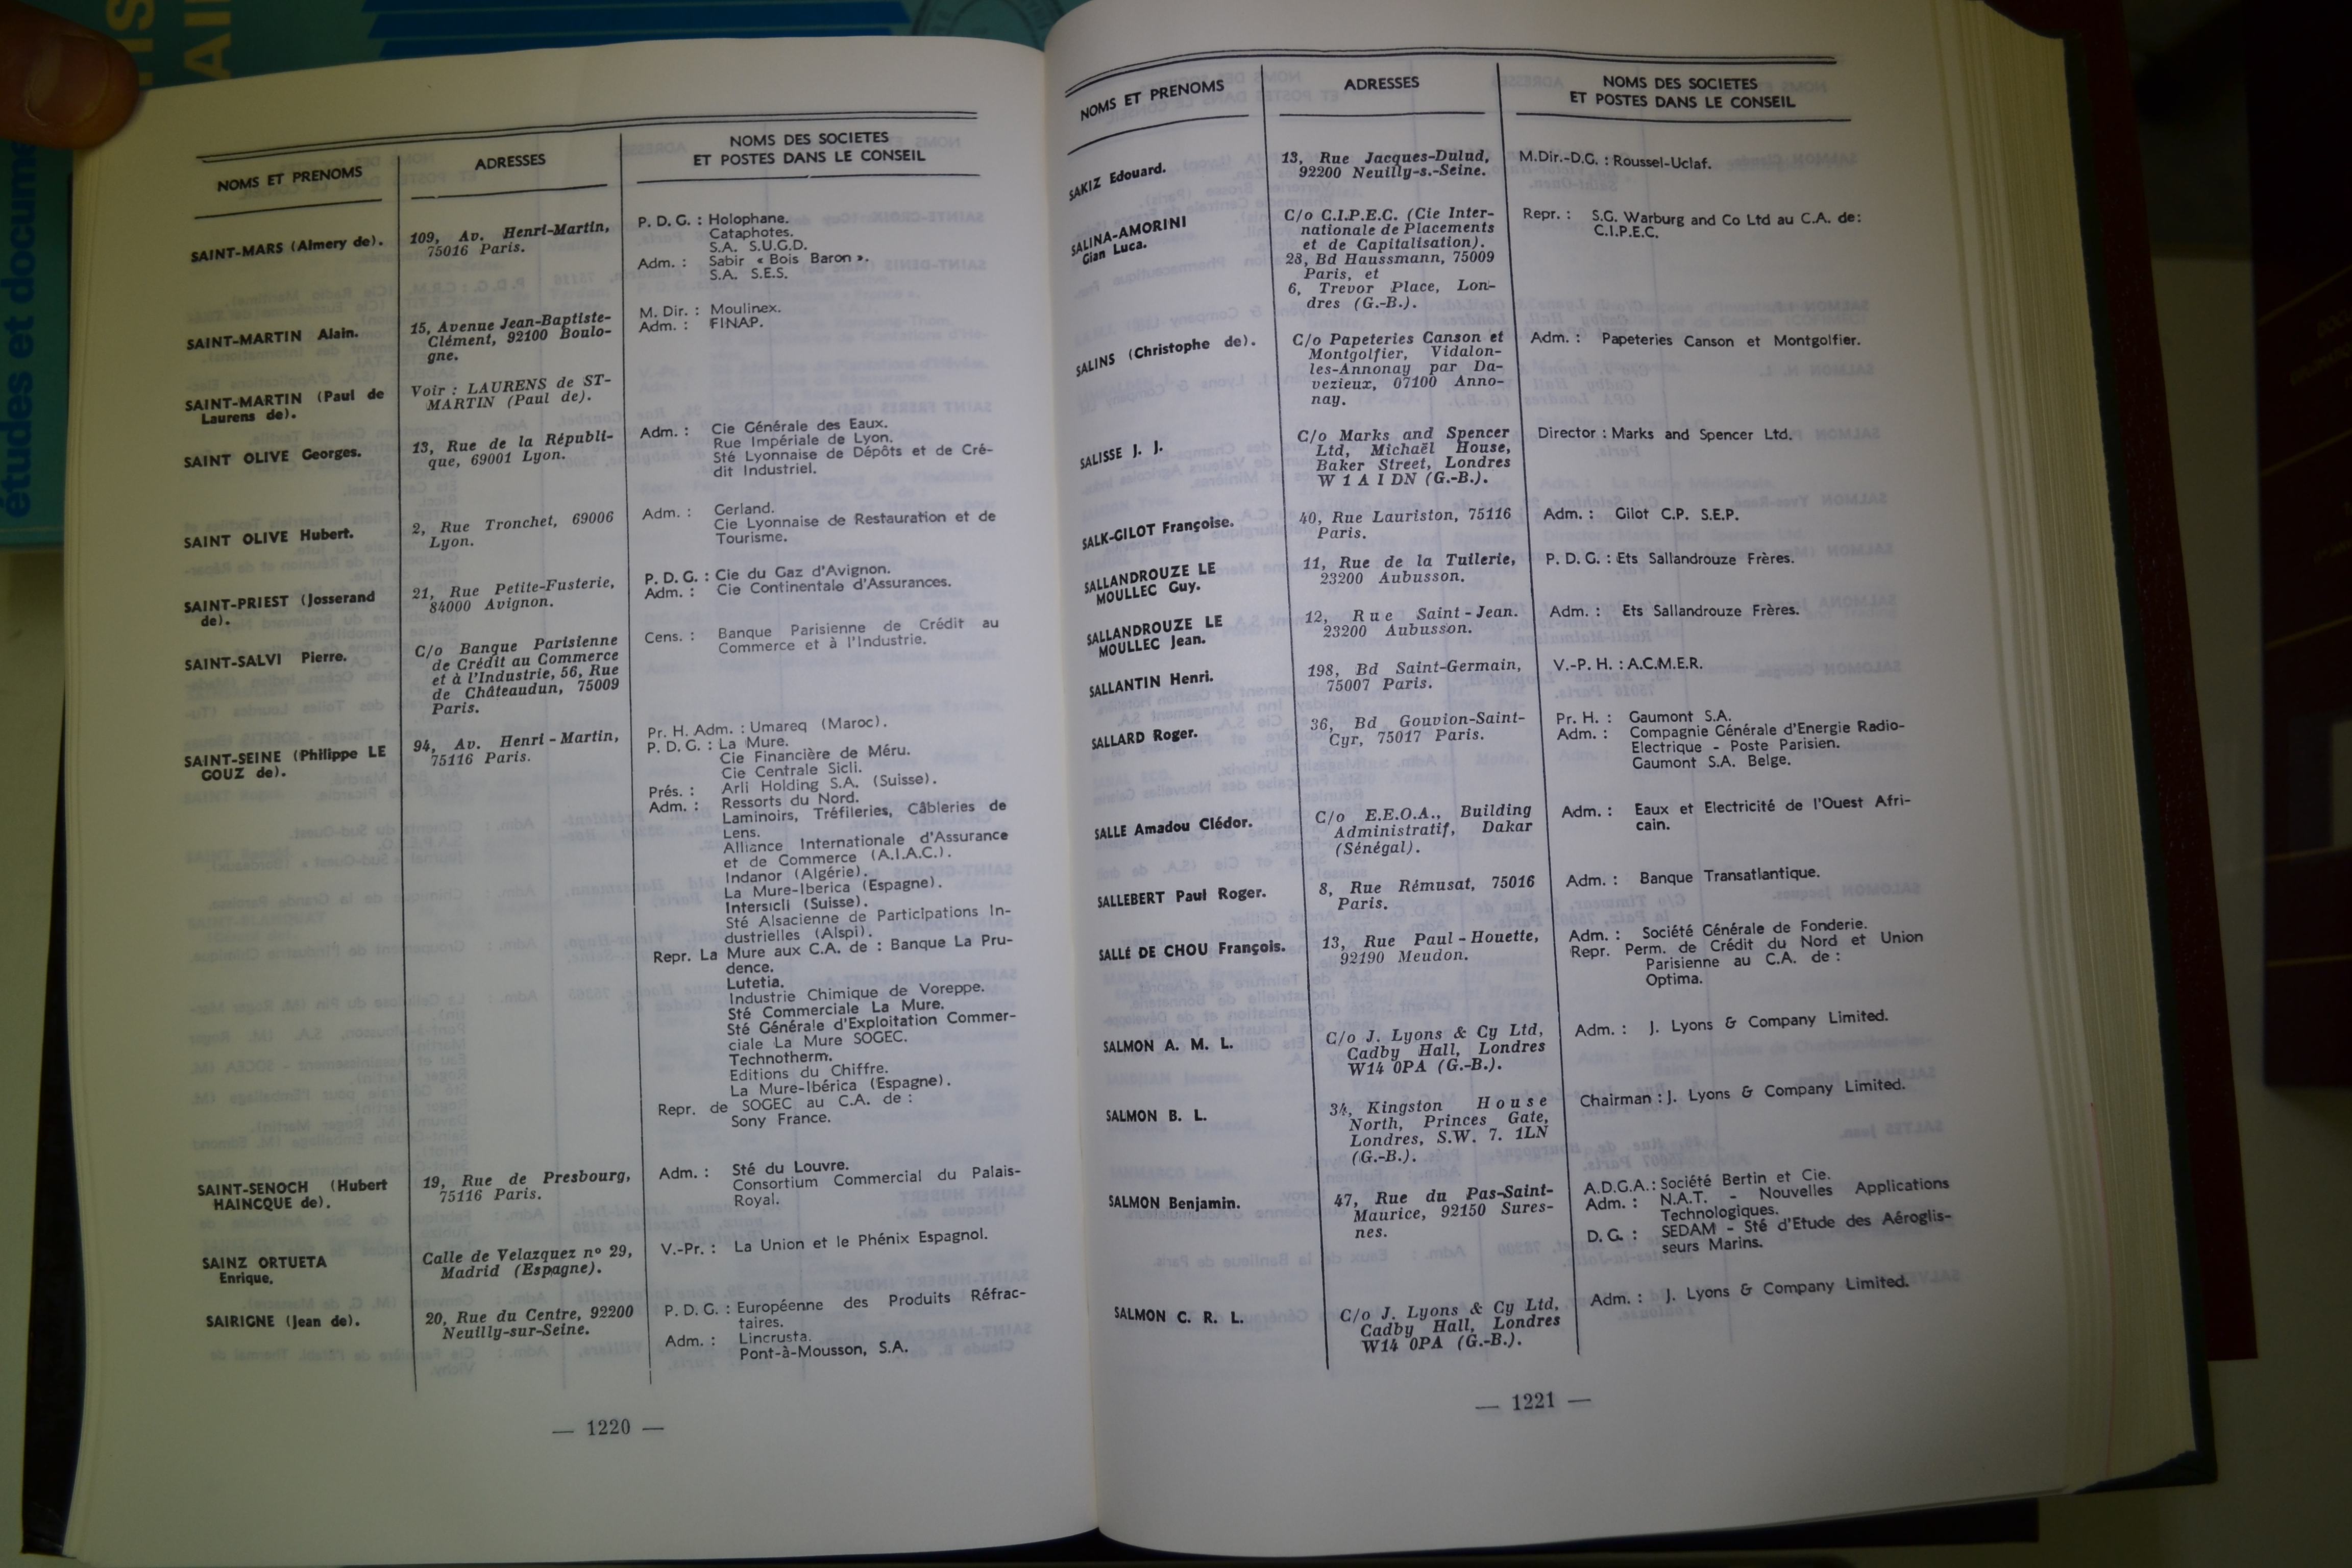 études et docume
NOMS ET PRENOMS
ADRESSES
NOMS DES SOCIETES
ET POSTES DANS LE CONSEIL
SAINT-MARS (Almery de).
109, Av. Henri-Martin,
75016 Paris.
P. D. G. : Holophane.
Cataphotes.
S.A. S.U.G.D.
Adm. : Sabir « Bois Baron ».
S.A. S.E.S.
SAINT-MARTIN Alain.
15, Avenue Jean-Baptiste-
Clément, 92100 Boulo-
gne.
M. Dir. : Moulinex.
Adm. : FINAP.
SAINT-MARTIN (Paul de
Laurens de).
Voir : LAURENS de ST-
MARTIN (Paul de).
SAINT OLIVE Georges.
13, Rue de la Républi-
que, 69001 Lyon.
Adm. : Cie Générale des Eaux.
Rue Impériale de Lyon.
Sté Lyonnaise de Dépôts et de Cré-
dit Industriel.
SAINT OLIVE Hubert.
2, Rue Tronchet, 69006
Lyon.
Adm. : Gerland.
Cie Lyonnaise de Restauration et de
Tourisme.
SAINT-PRIEST (Josserand
de).
21, Rue Petite-Fusterie,
84000 Avignon.
P. D. G. : Cie du Gaz d'Avignon.
Adm. : Cie Continentale d'Assurances.
SAINT-SALVI Pierre.
C/o Banque Parisienne
de Crédit au Commerce
et à l'Industrie, 56, Rue
de Châteaudun, 75009
Paris.
Cens. : Banque Parisienne de Crédit au
Commerce et à l'Industrie.
SAINT-SEINE (Philippe LE
GOUZ de).
94, Av. Henri-Martin,
75116 Paris.
Pr. H. Adm. : Umareq (Maroc).
P. D. G. : La Mure.
Cie Financière de Méru.
Cie Centrale Sicli.
Prés. : Arli Holding S.A. (Suisse).
Adm. : Ressorts du Nord.
Laminoirs, Tréfileries, Câbleries de
Lens.
Alliance Internationale d'Assurance
et de Commerce (A.I.A.C.).
Indanor (Algérie).
La Mure-Iberica (Espagne).
Intersicli (Suisse).
Sté Alsacienne de Participations In-
dustrielles (Alspi).
Repr. La Mure aux C.A. de : Banque La Pru-
dence.
Lutetia.
Industrie Chimique de Voreppe.
Sté Commerciale La Mure.
Sté Générale d'Exploitation Commer-
ciale La Mure SOGEC.
Technotherm.
Editions du Chiffre.
La Mure-Ibérica (Espagne).
Repr. de SOGEC au C.A. de :
Sony France.
SAINT-SENOCH (Hubert
HAINCQUE de).
19, Rue de Presbourg,
75116 Paris.
Adm. : Sté du Louvre.
Consortium Commercial du Palais-
Royal.
SAINZ ORTUETA
Enrique.
Calle de Velazquez nº 29,
Madrid (Espagne).
V.-Pr. : La Union et le Phénix Espagnol.
SAIRIGNE (Jean de).
20, Rue du Centre, 92200
Neuilly-sur-Seine.
P. D. G. : Européenne des Produits Réfrac-
taires.
Adm. : Lincrusta.
Pont-à-Mousson, S.A.
— 1220 —
NOMS ET PRENOMS
ADRESSES
NOMS DES SOCIETES
ET POSTES DANS LE CONSEIL
SAKIZ Edouard.
13, Rue Jacques-Dulud,
92200 Neuilly-s.-Seine.
M.Dir.-D.G. : Roussel-Uclaf.
SALINA-AMORINI
Gian Luca.
C/o C.I.P.E.C. (Cie Inter-
nationale de Placements
et de Capitalisation).
23, Bd Haussmann, 75009
Paris, et
6, Trevor Place, Lon-
dres (G.-B.).
Repr. : S.G. Warburg and Co Ltd au C.A. de:
C.I.P.E.C.
SALINS (Christophe de).
C/o Papeteries Canson et
Montgolfier, Vidalon-
les-Annonay par Da-
vezieux, 07100 Anno-
nay.
Adm. : Papeteries Canson et Montgolfier.
SALISSE J. J.
C/o Marks and Spencer
Ltd, Michaël House,
Baker Street, Londres
W 1 A 1 DN (G.-B.).
Director : Marks and Spencer Ltd.
SALK-GILOT Françoise.
40, Rue Lauriston, 75116
Paris.
Adm. : Gilot C.P. S.E.P.
SALLANDROUZE LE
MOULLEC Guy.
11, Rue de la Tuilerie,
23200 Aubusson.
P. D. G. : Ets Sallandrouze Frères.
SALLANDROUZE LE
MOULLEC Jean.
12, Rue Saint-Jean.
23200 Aubusson.
Adm. : Ets Sallandrouze Frères.
SALLANTIN Henri.
198, Bd Saint-Germain,
75007 Paris.
V.-P. H. : A.C.M.E.R.
SALLARD Roger.
36, Bd Gouvion-Saint-
Cyr, 75017 Paris.
Pr. H. : Gaumont S.A.
Adm. : Compagnie Générale d'Energie Radio-
Electrique - Poste Parisien.
Gaumont S.A. Belge.
SALLE Amadou Clédor.
C/o E.E.O.A., Building
Administratif, Dakar
(Sénégal).
Adm. : Eaux et Electricité de l'Ouest Afri-
cain.
SALLEBERT Paul Roger.
8, Rue Rémusat, 75016
Paris.
Adm. : Banque Transatlantique.
SALLÉ DE CHOU François.
13, Rue Paul-Houette,
92190 Meudon.
Adm. : Société Générale de Fonderie.
Repr. Perm. de Crédit du Nord et Union
Parisienne au C.A. de :
Optima.
SALMON A. M. L.
C/o J. Lyons & Cy Ltd,
Cadby Hall, Londres
W14 0PA (G.-B.).
Adm. : J. Lyons & Company Limited.
SALMON B. L.
34, Kingston House
North, Princes Gate,
Londres, S.W. 7. 1LN
(G.-B.).
Chairman : J. Lyons & Company Limited.
SALMON Benjamin.
47, Rue du Pas-Saint-
Maurice, 92150 Sures-
nes.
A.D.G.A.: Société Bertin et Cie.
Adm. : N.A.T. - Nouvelles Applications
Technologiques.
D. G. : SEDAM - Sté d'Etude des Aéroglis-
seurs Marins.
SALMON C. R. L.
C/o J. Lyons & Cy Ltd,
Cadby Hall, Londres
W14 0PA (G.-B.).
Adm. : J. Lyons & Company Limited.
— 1221 —